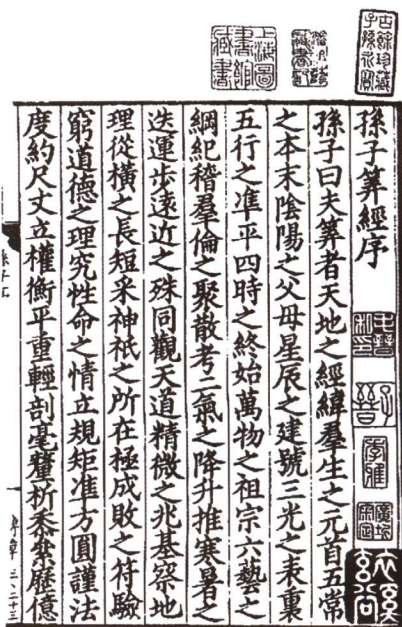 孫子筭經序
孫子曰夫筭者天地之經緯羣生之元首五常
之本末陰陽之父母星辰之建號三光之表裏
五行之準平四時之終始萬物之祖宗六藝之
綱紀稽羣倫之聚散考二氣之降升推寒暑之
迭運步遠近之殊同觀天道精微之兆基察地
理從橫之長短采神祇之所在極成敗之符驗
窮道德之理究性命之情立規矩準方圓謹法
度約尺丈立權衡平重輕剖毫釐析黍絫歷億
上海圖書館藏書